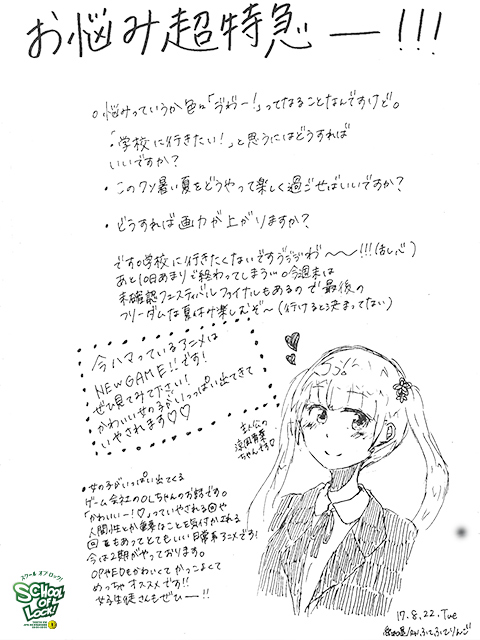 お悩み超特急ー!!!
。悩みっていうか色々「うわー！」ってなることなんですけど。
・「学校に行きたい！」と思うにはどうすれば
いいですか？
・このクソ暑い夏をどうやって楽しく過ごせばいいですか？
・どうすれば画力が上がりますか？
です。学校に行きたくないですううううわ〜〜!!!(本心)
あと10日あまりで終わってしまう…。今週末は
未確認フェスティバルファイナルもあるので最後の
フリーダムな夏休み楽しむぞ〜(行けると決まってない)
今ハマっているアニメは
NEW GAME!!です！
ぜひ見てみて下さい！
かわいい女の子がいっぱい出てきて
いやされます♡♡
主人公の
涼風青葉
ちゃんです♡
●女の子がいっぱい出てくる
ゲーム会社のOLちゃんのお話です。
「かわいいー！♡」っていやされる回や
人間性とか重要なことを気付かされる
回もあってとてもいい日常系アニメです！
今は2期がやっております。
OPやEDもかわいくてかっこよくて
めっちゃオススメです!!
女子生徒さんもぜひー!!
スクール オブ ロック!
SCHOOL OF LOCK!
17.8.22.Tue